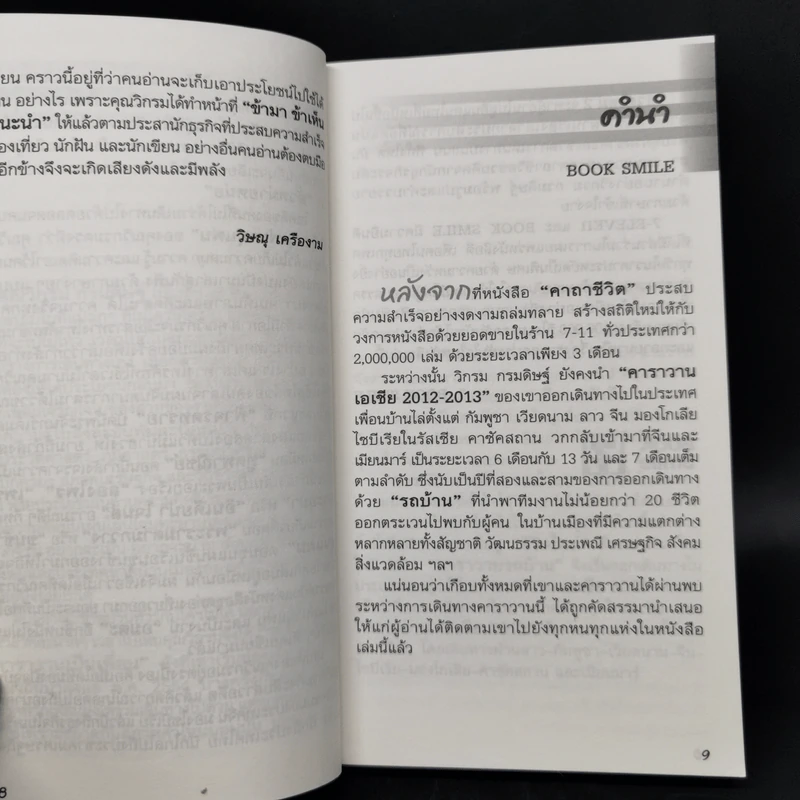 ยน คราวนี้อยู่ที่ว่าคนอ่านจะเก็บเอาประโยชน์ไปใช้ได้
น อย่างไร เพราะคุณวิกรมได้ทำหน้าที่ “ข้ามา ข้าเห็น
นะนำ” ให้แล้วตามประสานักธุรกิจที่ประสบความสำเร็จ
องเที่ยว นักฝัน และนักเขียน อย่างอื่นคนอ่านต้องตบมือ
อีกข้างจึงจะเกิดเสียงดังและมีพลัง
วิษณุ เครืองาม
8
คำนำ
BOOK SMILE
หลังจากที่หนังสือ “คาถาชีวิต” ประสบ
ความสำเร็จอย่างงดงามถล่มทลาย สร้างสถิติใหม่ให้กับ
วงการหนังสือด้วยยอดขายในร้าน 7-11 ทั่วประเทศกว่า
2,000,000 เล่ม ด้วยระยะเวลาเพียง 3 เดือน
ระหว่างนั้น วิกรม กรมดิษฐ์ ยังคงนำ “คาราวาน
เอเชีย 2012-2013” ของเขาออกเดินทางไปในประเทศ
เพื่อนบ้านไล่ตั้งแต่ กัมพูชา เวียดนาม ลาว จีน มองโกเลีย
ไซบีเรียในรัสเซีย คาซัคสถาน วกกลับเข้ามาที่จีนและ
เมียนมาร์ เป็นระยะเวลา 6 เดือนกับ 13 วัน และ 7 เดือนเต็ม
ตามลำดับ ซึ่งนับเป็นปีที่สองและสามของการออกเดินทาง
ด้วย “รถบ้าน” ที่นำพาทีมงานไม่น้อยกว่า 20 ชีวิต
ออกตระเวนไปพบกับผู้คน ในบ้านเมืองที่มีความแตกต่าง
หลากหลายทั้งสัญชาติ วัฒนธรรม ประเพณี เศรษฐกิจ สังคม
สิ่งแวดล้อม ฯลฯ
แน่นอนว่าเกือบทั้งหมดที่เขาและคาราวานได้ผ่านพบ
ระหว่างการเดินทางคาราวานนี้ ได้ถูกคัดสรรมานำเสนอ
ให้แก่ผู้อ่านได้ติดตามเขาไปยังทุกหนทุกแห่งในหนังสือ
เล่มนี้แล้ว
9